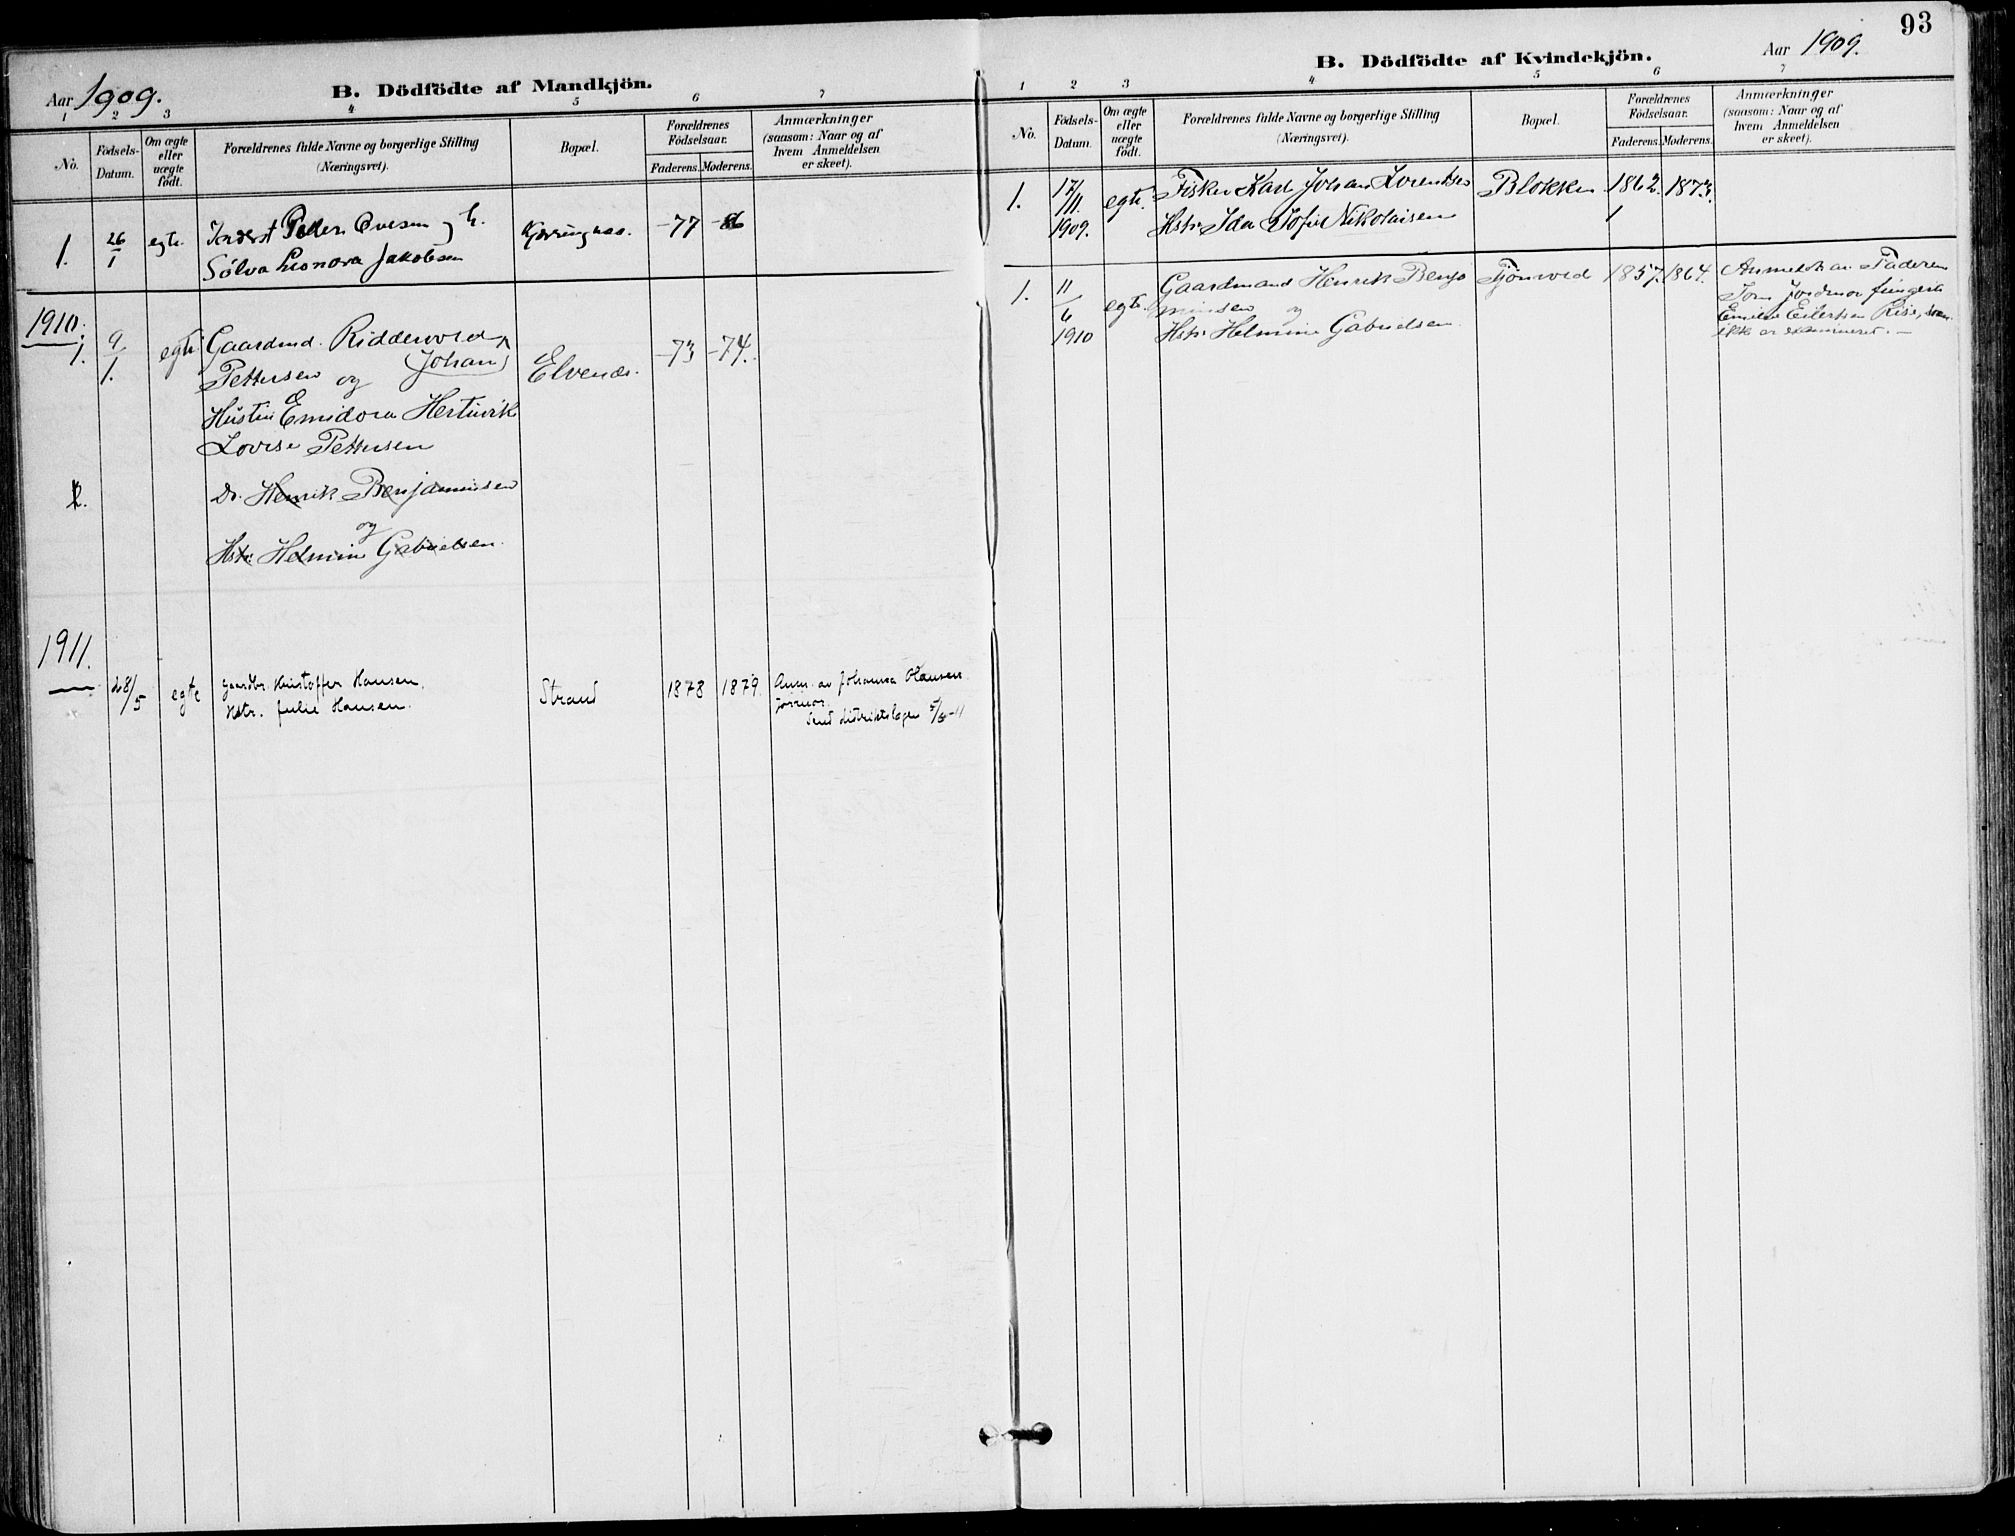 93
Aar 1909.
B. Dödfödte af Mandkjön.
1 2 3 4 5 6 7
No.
Födsels-Datum.
Om ægte eller uægte födt.
Forældrenes fulde Navne og borgerlige Stilling
(Næringsvei).
Bopæl.
Forældrenes Födselsaar.
Faderens. Moderens.
Anmærkninger
(saasom: Naar og af
hvem Anmeldelsen
er skeet).
1. 26/1 egte. Peder Ovesen og h. Kjerringnes. -77
Sölva Leonora Jakobsen
1910.
1. 9/1. egte Gaardmd. Riddervold
Pettersen og (Johan) Elvenes. -73 -74.
Hustru Emidora Hertvik
Lovise Pettersen
2. Do. Henrik Benjaminsen
og
Hstr. Helmine Gabrielsen.
1911.
28/5 egte Gaardbr. Kristoffer Hansen, Strand 1878 1879. Anm. av Johanna Hansen
Hstr. Julie Hansen. jormor.
Sent distriktslægen
B. Dödfödte af Kvindekjön.
Aar 1909.
1 2 3 4 5 6 7
No.
Födsels-Datum.
Om ægte eller uægte födt.
Forældrenes fulde Navne og borgerlige Stilling
(Næringsvei).
Bopæl.
Forældrenes Födselsaar.
Faderens. Moderens.
Anmærkninger
(saasom: Naar og af
hvem Anmeldelsen
er skeet).
1. 17/11 1909. egte. Fisker Karl Johan Lorentsen Blokken 1862. 1873.
Hstr. Ida Sofie Nikolaisen
1. 11/6 1910 egte. Gaardmand Henrik Benja Tjönvold 1857. 1864. Anmeldt av Faderen
minsen og Som Jordmor fungerte
Hstr. Helmine Gabrielsen. Emilie Eilertsen Risö, som
ikke er examineret. —